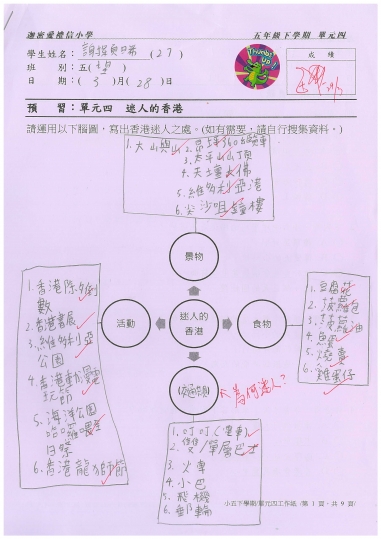 迦密愛禮信小學
五年級下學期 單元四
學生姓名：
(27)
成績
班 別：五( )
日 期：(3)月(28)日
Thumbs Up!
預 習：單元四 迷人的香港
請運用以下腦圖，寫出香港迷人之處。(如有需要，請自行搜集資料。)
1.大山與山
2.昂坪360纜車
3.太平山山頂
4.天壇大佛
5.維多利亞港
6.尖沙咀鐘樓
景物
1.香港除夕倒
數
2.香港書展
3.維多利亞
公園
4.香港動漫電
玩節
5.海洋公園
哈囉喂
日祭
6.香港龍獅節
活動
迷人的
香港
食物
1.豆腐花
2.菠蘿包
3.菠蘿油
4.魚蛋
5.燒賣
6.雞蛋仔
交通
為何迷人？
1.叮叮(電車)
2.雙/單層巴士
3.火車
4.小巴
5.飛機
6.郵輪
小五下學期/單元四工作紙 /第 1 頁，共 9 頁/